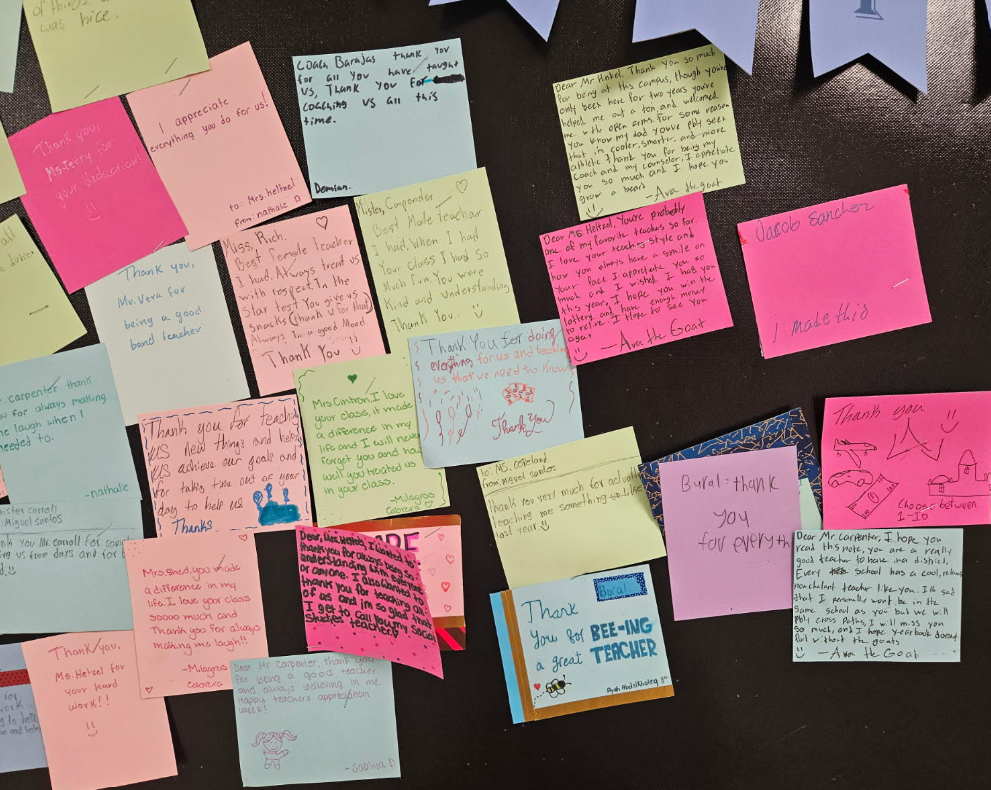 of things
was nice.
Thank you!
Ms. Terry for
your deduction!
I appreciate
everything you do for us!
to: Mrs Heltzel
from: nathalie D
Coach Barajas thank you
for all you have taught
us, Thank you for
coaching us all this
time.
Demian.
Dear Mr Hinkel, Thank you so much
for being at this campus, though you've
only been here for two years you've
helped me out a ton and welcomed
me with open arms. For some reason
you know my dad you've pbly seen
that im cooler, smarter, and more
athletic thank you for being my
coach and my counselor. I apreciate
you so much and I hope you
grow a beard. -Ava the goat
Dear Ms. Heltzel, You're probably
one of my favorite teaches so far.
I love your teaching style and
how you always have a smile on
your face. I apreciate you so
much and I wished I had you
this year, I hope you win the
lottery and have enough money
to retire. I Hope to see you
again
-Ava the Goat
Jacob Sanchez
I made this
Thank you,
Mr. Vera for
being a good
band teacher
Miss, Rich.
Best female teacher
I had. Always treat us
with respect. In the
star test You give us
snacks (thank u for that)
Always in a good Mood.
Thank You !!
Mister, Carpender
Best Male teachar
I had. When I had
Your class I had so
Much fun. You were
Kind and Understanding
Thank You.
Thank You for doing
everything for us and teaching
us that we need to know
Thank You
carpenter thank
for always making
me laugh when I
needed to.
-nathalie
Thank you for teaching
us new things and helping
us achieve our goals and
for taking time out of your
day to help us
Thanks
Mrs Cintron, I love
your class, it made
a difference in my
life and I will never
forget you and how
well you treated us
in your class.
-Milagros
Cabrera
to: MS. Copeland
from: miguel santos
Thank you very much for actually
teaching me something
last year.
Bural: thank
you
for everyth
Thank you
Choose between
1-10
mister carroll
Miguel santos
Mr. Carroll for
us free days and for
Mrs. Shed, you made
a difference in my
life. I love your class
soooo much and
Thannk you for always
making me laugh!!
-Milagros
Cabrera
Dear, Mrs. Heltzel, I wanted to
thank you for always being so
understanding with everyone
or anyone. I also wanted to
thank you for teaching all
of us and im so glad that
I get to call you my Social
Studies teacher.
Dear Mr. Carpenter, I hope you
read this note, you are a really
good teacher to have in a district.
Every school has a cool, relaxed
nonchalent teacher like you. It's sad
that I personally wont be in the
same school as you but we will
pbly cross paths, I will miss you
so much, and I hope yearbook doesnt
fail without the goats
-Ava the Goat
Bural
Thank
You for BEE-ING
a great TEACHER
Thank you,
Ms. Hetzel for
your hard
work!!
Dear Mr Carpenter, thank you
for being a good teacher
and always believing in me
Happy teachers appreciation
week!
-Sabrina D